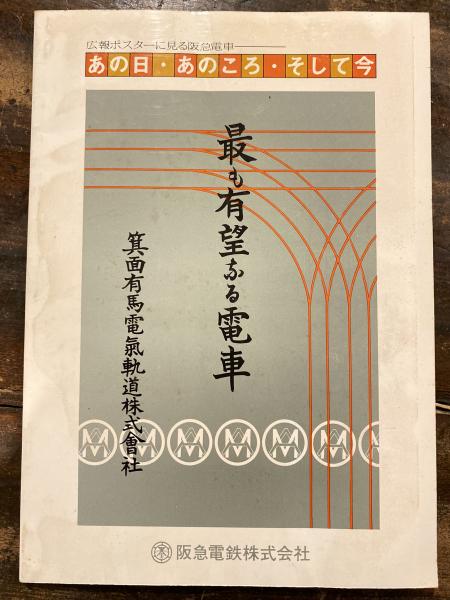 広報ポスターに見る阪急電車
あの日・あのころ・そして今
最も有望なる電車
箕面有馬電氣軌道株式會社
阪急電鉄株式会社